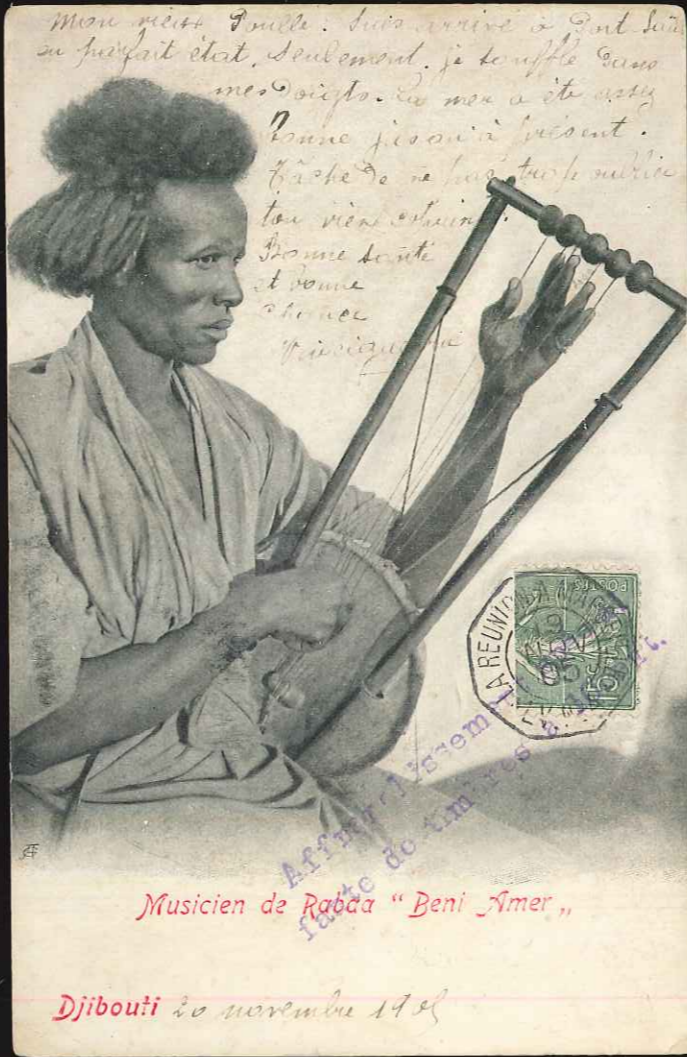 Mon vieux Poulle : Suis arrivé à Port Saïd
en parfait état. Seulement. je souffle dans
mes doigts. La mer a été assez
bonne jusqu'à présent.
Tâche de ne pas trop oublier
ton vieux
Bonne santé
et bonne
chance
POSTES
LA REUNION A MARSEILLE
05
Affranchissement
faute de timbres à
Musicien de Rabda “ Beni Amer „
Djibouti 20 novembre 1905